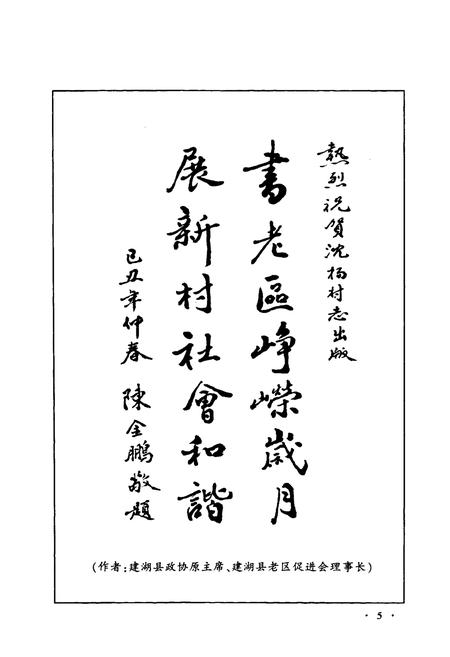 熱烈祝賀沈楊村志出版
書老區崢嶸歲月
展新村社會和諧
己丑年仲春 陳金鵬敬題
(作者:建湖县政协原主席、建湖县老区促进会理事长)
· 5 ·